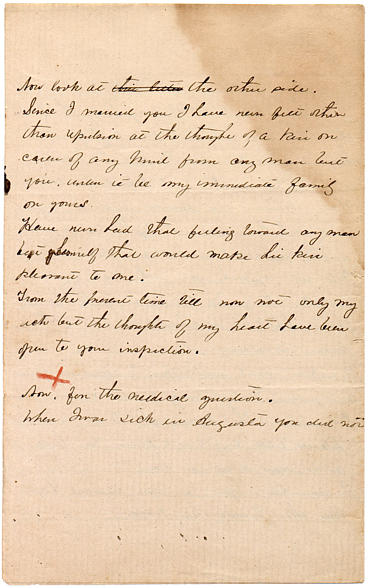 Now look at this letter the other side.
Since I married you I have never felt other
than repulsion at the thought of a kiss or
caress of any kind from any man but
you, unless it be my immediate family
or yours.
Have never had that feeling toward any man
but yourself that would make his kiss
pleasant to me.
From the present time till now not only my
acts but the thoughts of my heart have been
open to your inspection.
Now, for the medical question.
When I was sick in Augusta you did not